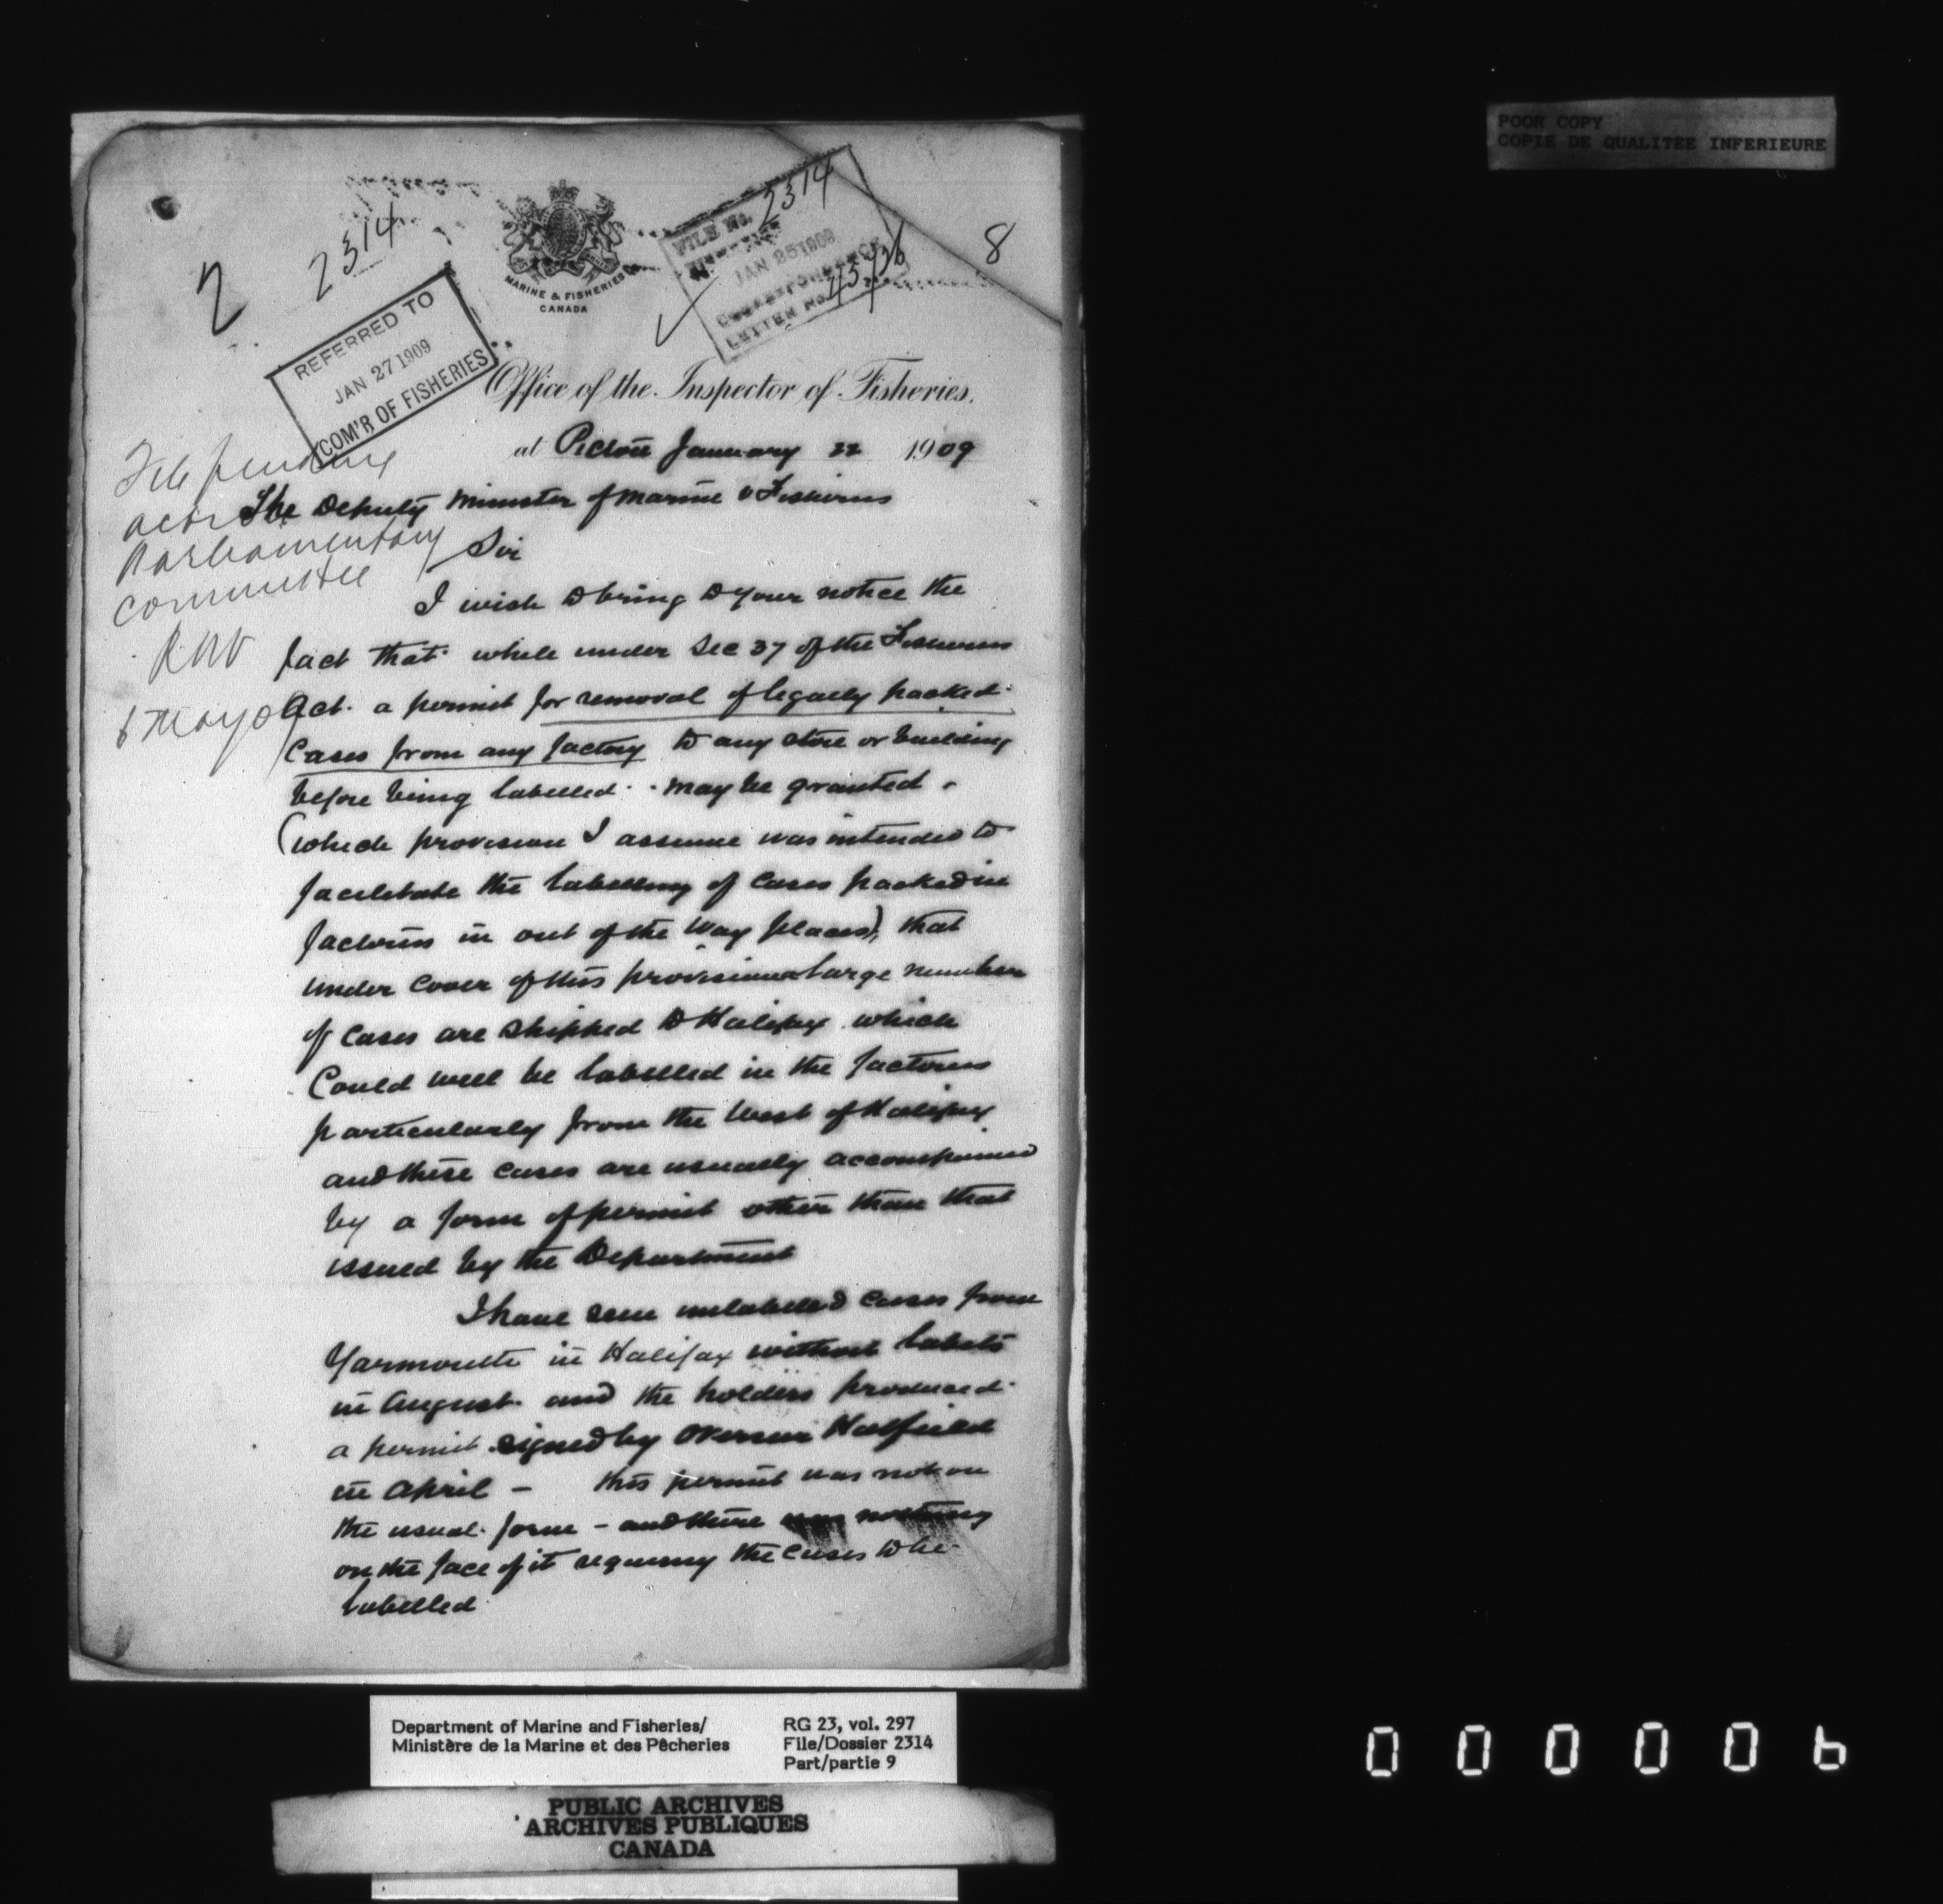 POOR COPY
COPIE DE QUALITEE INFERIEURE
2
2314
8
MARINE & FISHERIES
CANADA
FILE No. 2314
JAN 25 1909
CORRESPONDENCE
LETTER No.
REFERRED TO
JAN 27 1909
COM'R OF FISHERIES
Office of the Inspector of Fisheries.
at Pictou January 22 1909
File pending
Parliamentary
Committee
The Deputy Minister of Marine & Fisheries
Sir
I wish to bring to your notice the
fact that while under Sec 37 of the Fisheries
Act. a permit for removal of legally packed
Cases from any factory to any store or building
before being labelled may be granted.
(which provision I assume was intended to
facilitate the labelling of cases packed in
factories in out of the way places), that
under cover of this provision large numbers
of cases are shipped to Halifax which
Could well be labelled in the factories
particularly from the West of Halifax
and these cases are usually accompanied
by a form of permit other than that
issued by the Department
I have seen unlabelled cases from
Yarmouth in Halifax without labels
in August. and the holders produced
a permit signed by Overseer Hatfield
in April – this permit was not on
the usual form – and there was nothing
on the face of it requiring the cases to be
labelled
Department of Marine and Fisheries/
Ministère de la Marine et des Pêcheries
RG 23, vol. 297
File/Dossier 2314
Part/partie 9
PUBLIC ARCHIVES
ARCHIVES PUBLIQUES
CANADA
000006